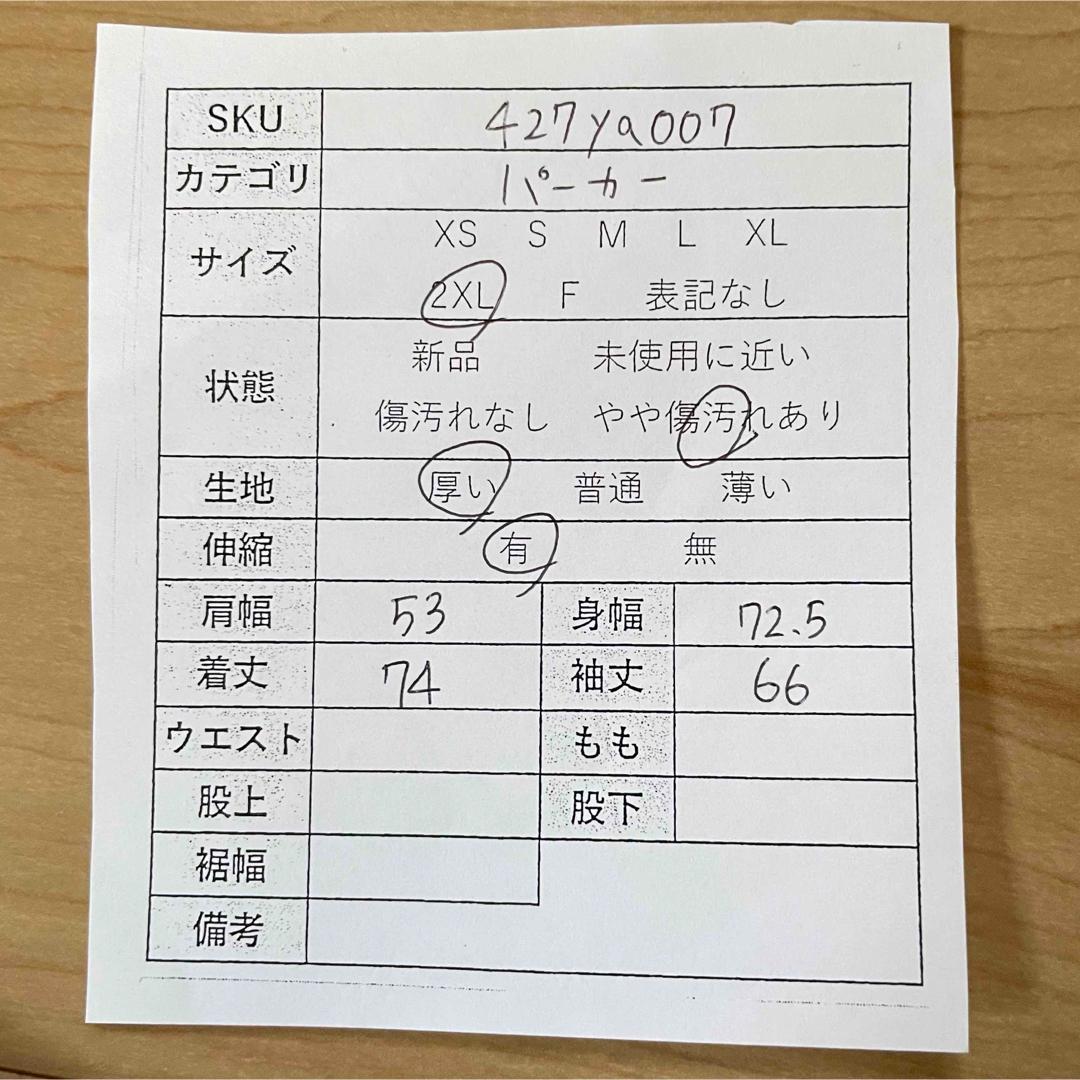 SKU 427ya007
カテゴリ パーカー
サイズ XS S M L XL
2XL F 表記なし
状態 新品 未使用に近い
傷汚れなし やや傷汚れあり
生地 厚い 普通 薄い
伸縮 有 無
肩幅 53 身幅 72.5
着丈 74 袖丈 66
ウエスト もも
股上 股下
裾幅
備考